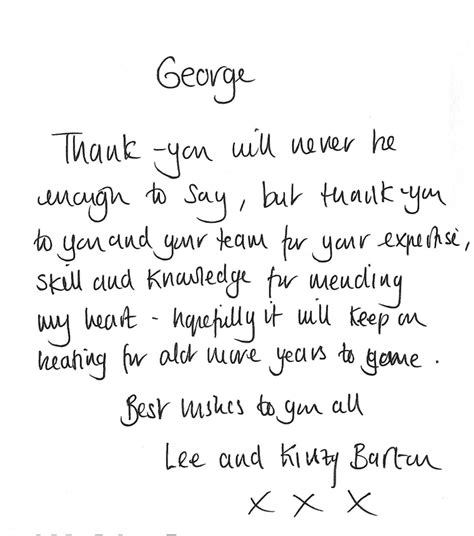 George
Thank-you will never be
enough to say, but thank-you
to you and your team for your expertise,
skill and knowledge for mending
my heart - hopefully it will keep on
beating for alot more years to come.
Best wishes to you all
Lee and Kinzy Barton
X X X